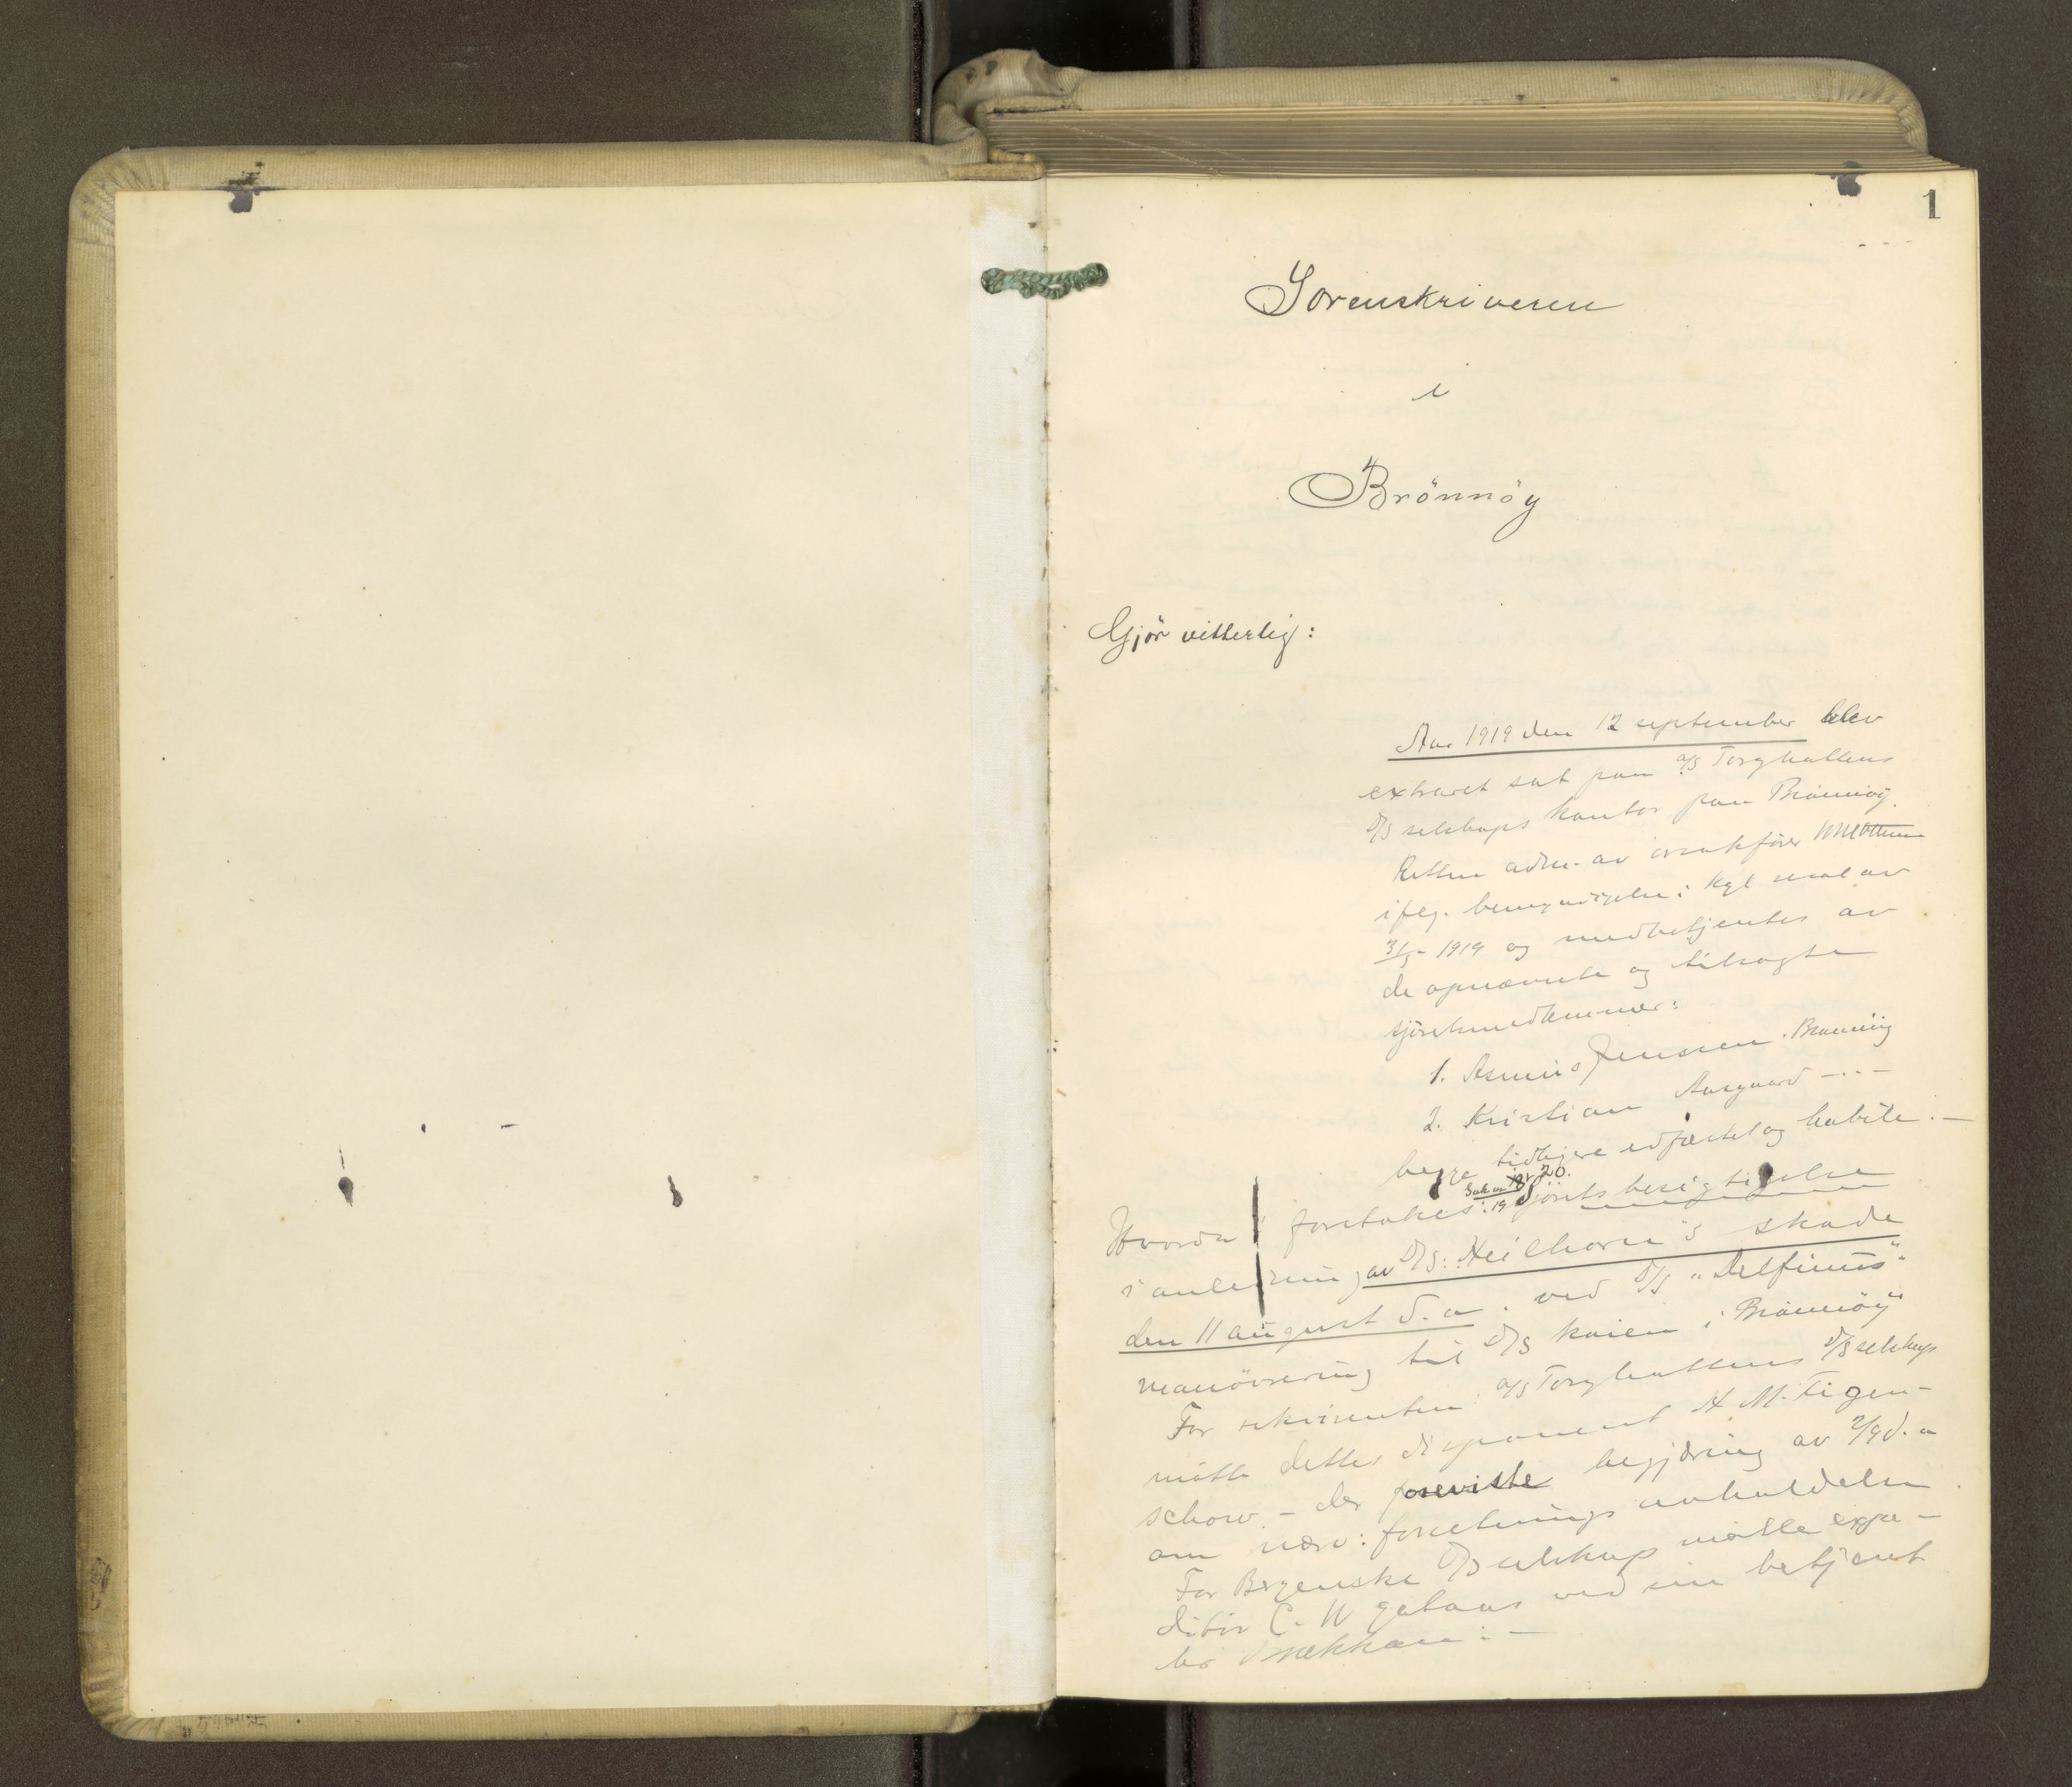 1
Sorenskriveren
i
Brönnöy
Gjör vitterlig:
Aar 1919 den 12 september blev
extraret sat paa a/s Torghattens
D/S selskaps kontor paa Brönnöy.
Retten adm. av
ifølg. bemyndigelse i kgl resol av
1919 og medbetjentes av
de opnævnte og tilkagte
sjöretsmedlemmer:
1. Asmus Jenssen. Brönnöy
2. Kristian Aasgaard — · · —
begge tidligere edfæstet og habile. —
Sak nr 20.
19
Hvorda foretokes: sjörets besigtigelse
i anledning av D/S: Heilhorn's skade
den 11 august d. a. ved D/S "Delfinus"
manövrering til D/S kaien i Brönnöy
For rekvirenten a/s Torghattens D/S selskap
mötte dettes disponent H M. Tigen-
schow. - der foreviste begjæring av 2/9 d. a
om nærv: forretnings avholdelse
For Bergenske D/S selskap mötte expe-
ditör C. W ved sin betjent
hr Brækkan: —